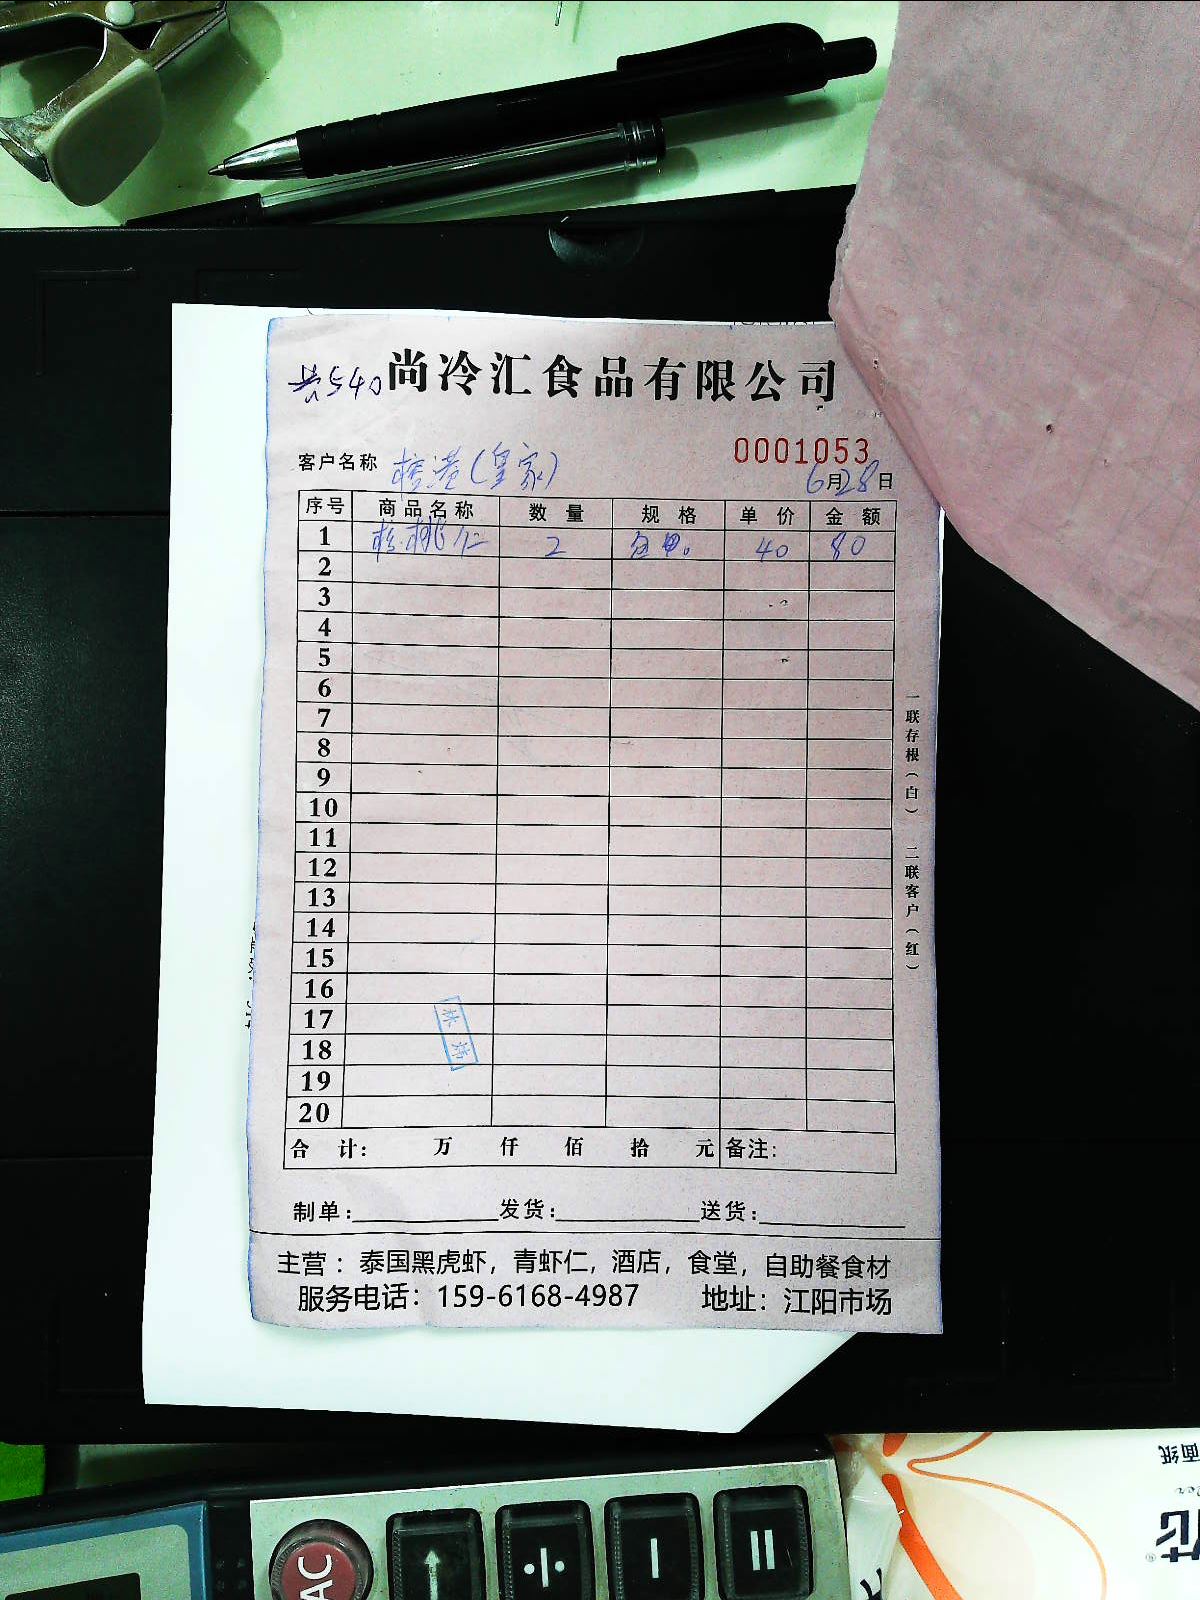 共540 尚冷汇食品有限公司
0001053
客户名称 (皇家) 6月28日
序号 商品名称 数量 规格 单价 金额
1 核桃仁 2 40 80
2
3
4
5
6
7
8
9
10
11
12
13
14
15
16
17
18
19
20
合计: 万 仟 佰 拾 元 备注:
制单: 发货: 送货:
主营：泰国黑虎虾，青虾仁，酒店，食堂，自助餐食材
服务电话：159-6168-4987 地址：江阳市场
一联存根(白) 二联客户(红)
林炜
AC ↑ ÷ − =
面纸